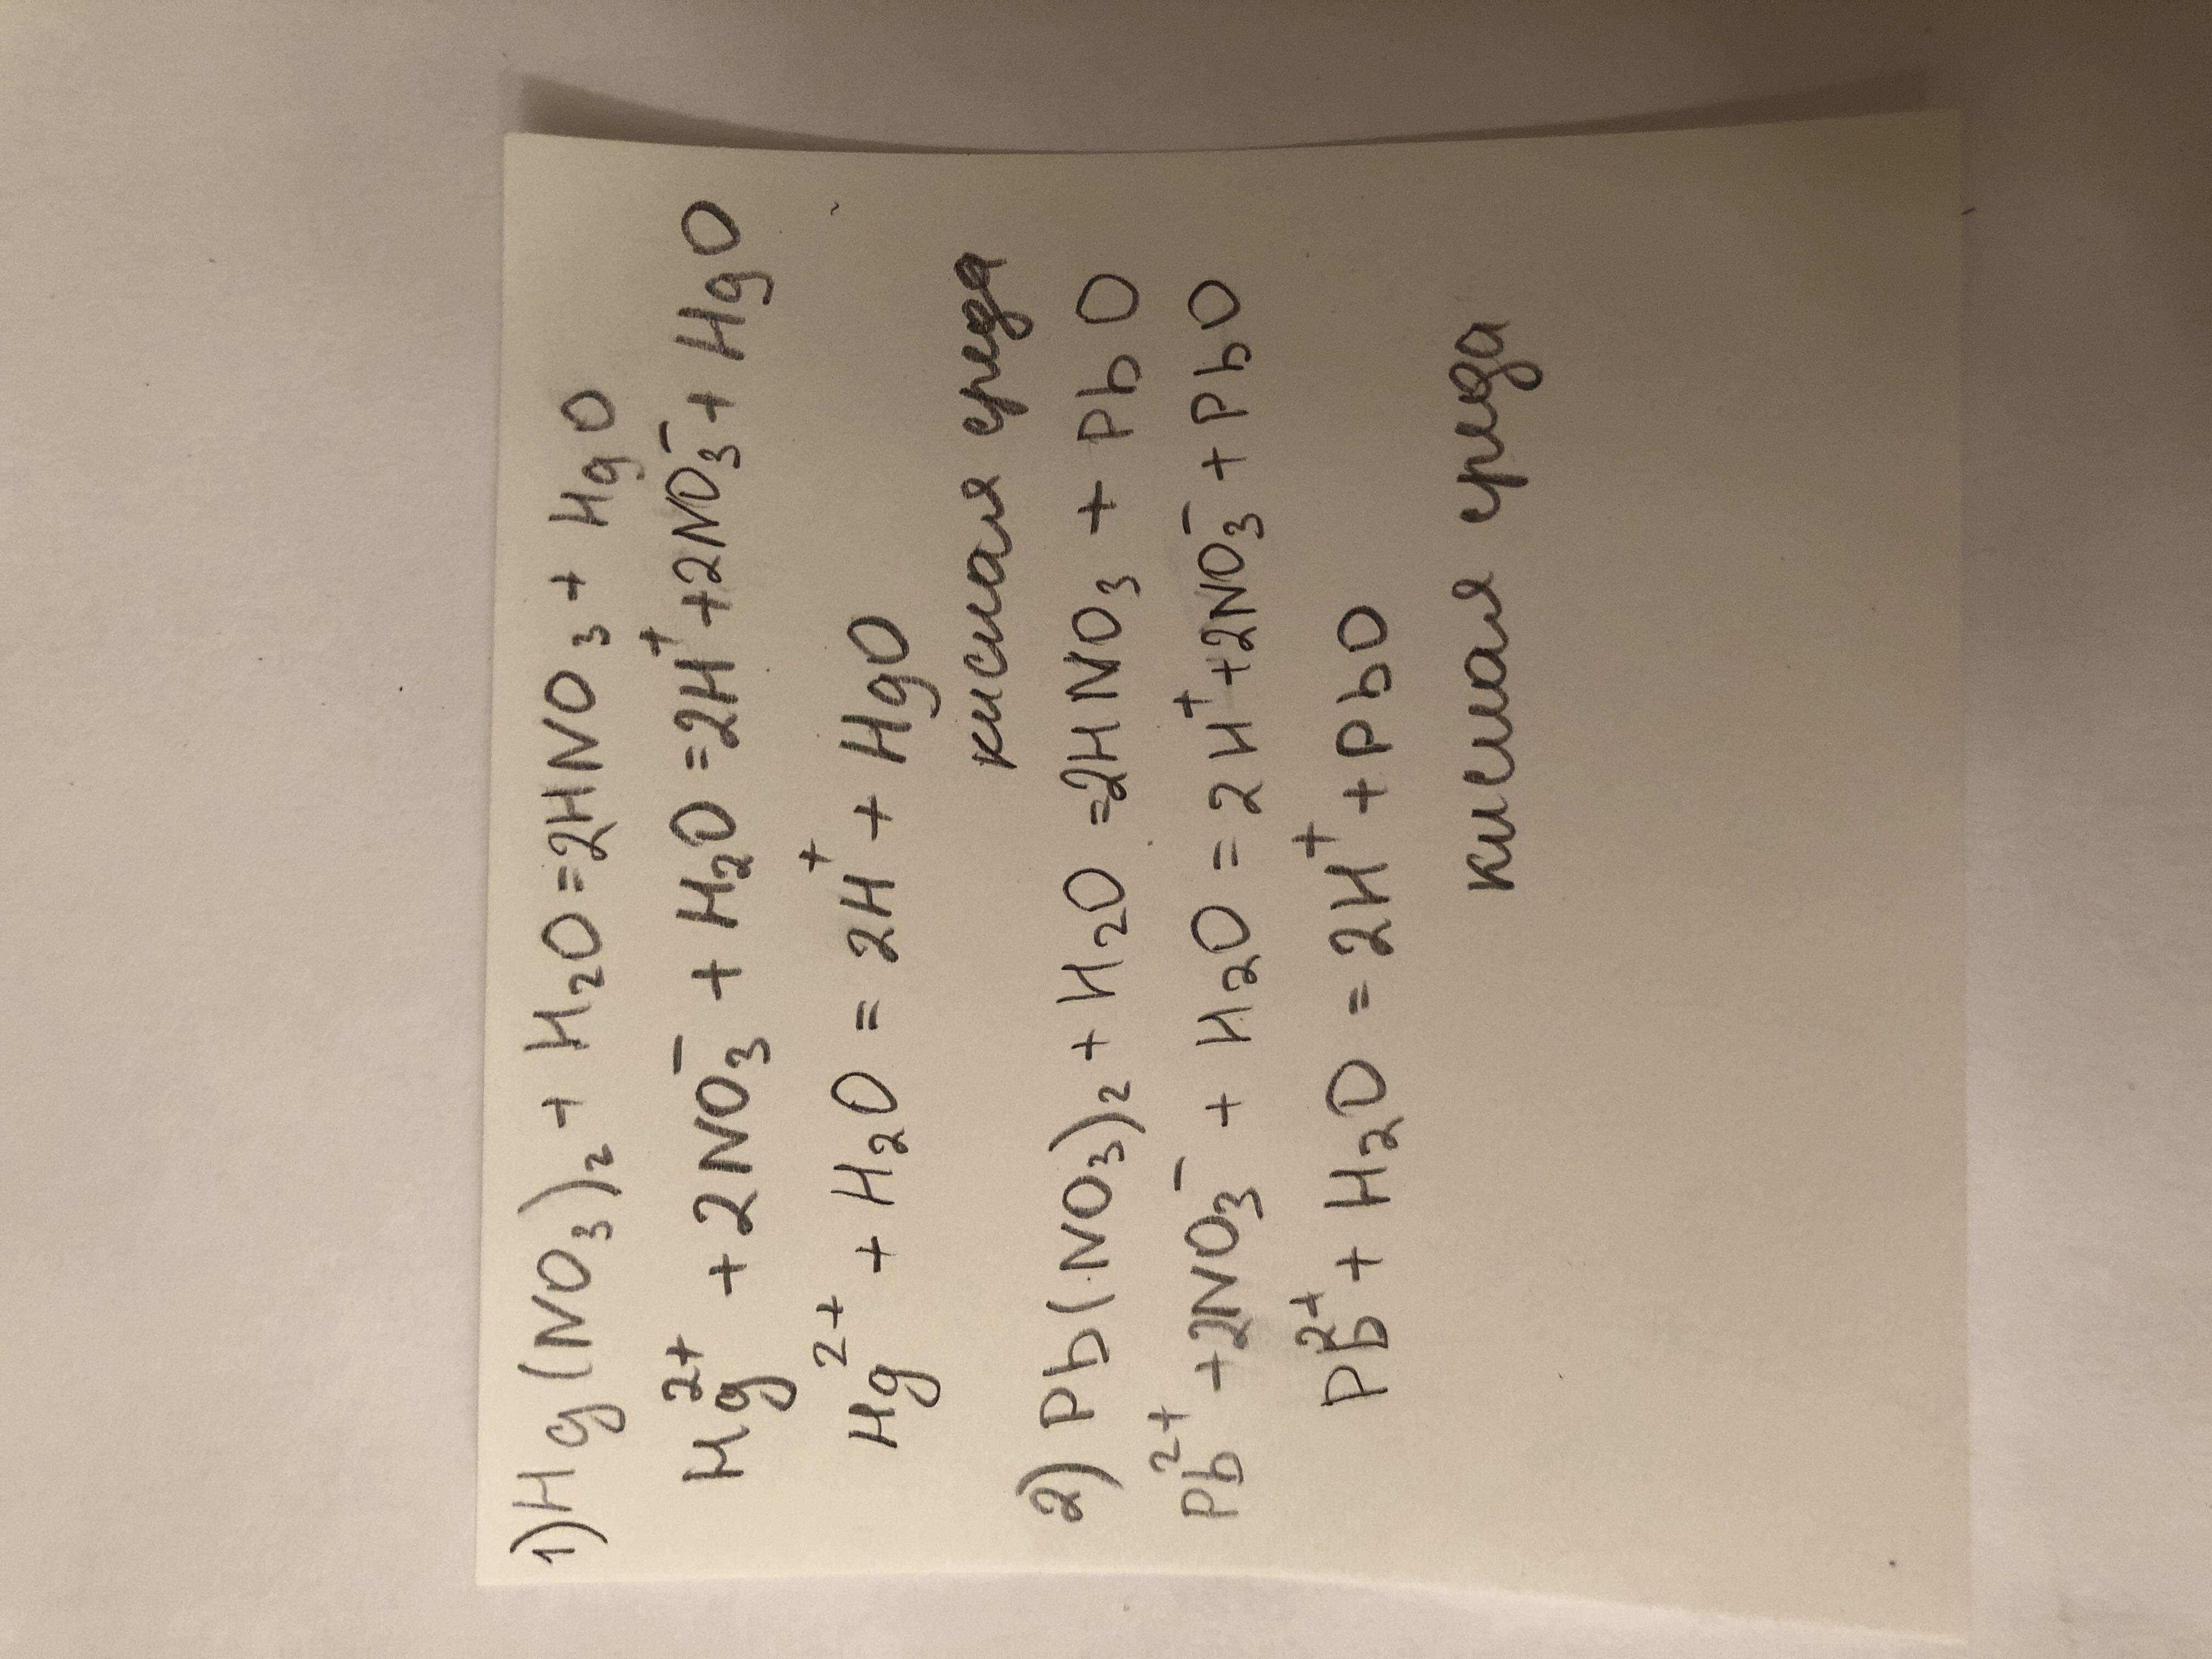 1) Hg(NO₃)₂ + H₂O = 2HNO₃ + HgO
Hg²⁺ + 2NO₃⁻ + H₂O = 2H⁺ + 2NO₃⁻ + HgO
Hg²⁺ + H₂O = 2H⁺ + HgO
кислая среда
2) Pb(NO₃)₂ + H₂O = 2HNO₃ + PbO
Pb²⁺ + 2NO₃⁻ + H₂O = 2H⁺ + 2NO₃⁻ + PbO
Pb²⁺ + H₂O = 2H⁺ + PbO
кислая среда